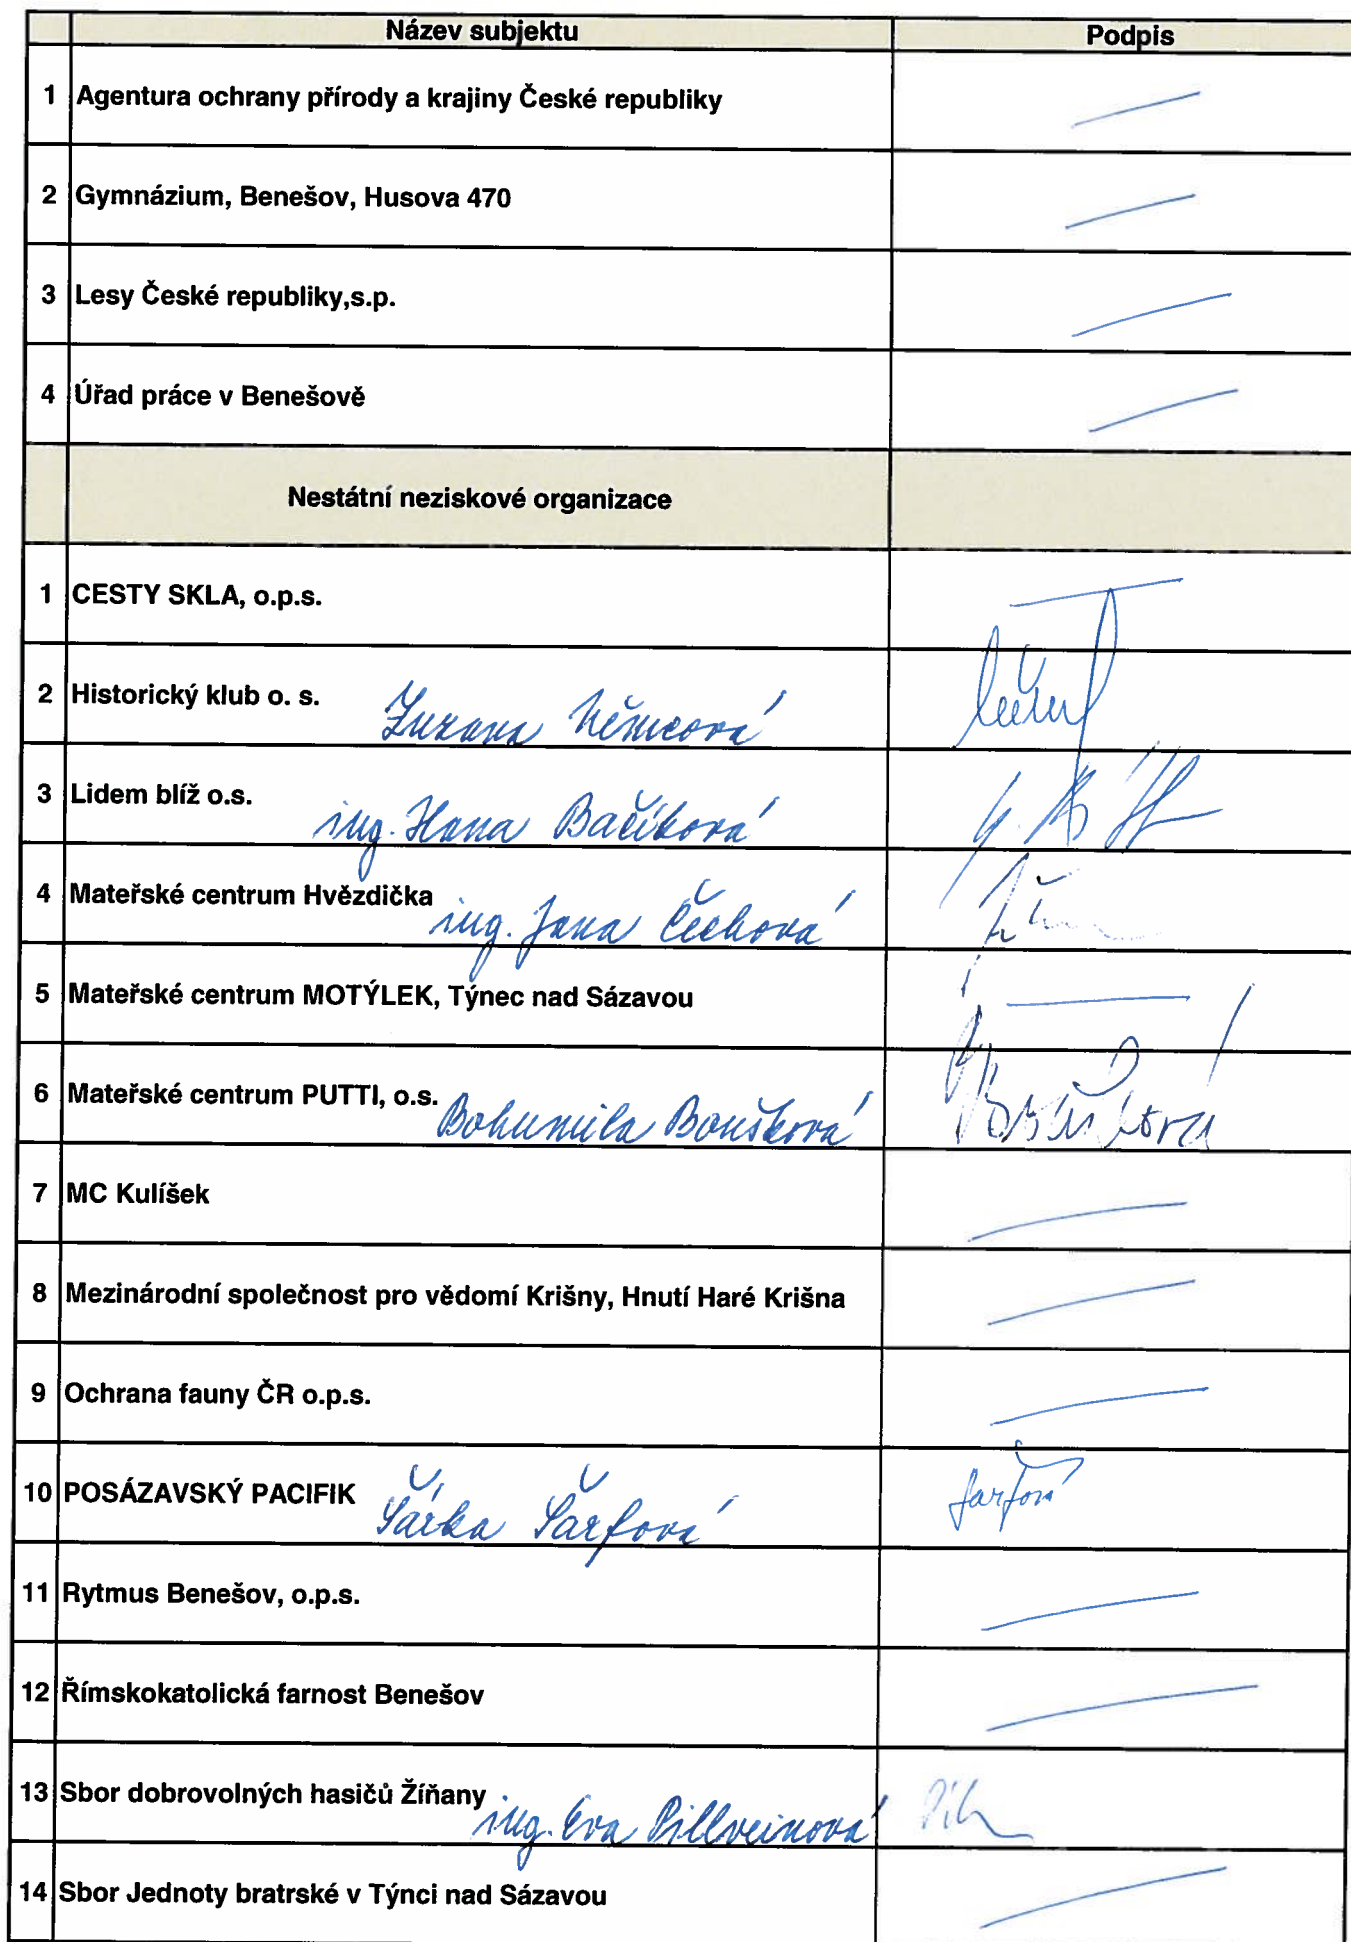 Název subjektu Podpis
1 Agentura ochrany přírody a krajiny České republiky
2 Gymnázium, Benešov, Husova 470
3 Lesy České republiky,s.p.
4 Úřad práce v Benešově
Nestátní neziskové organizace
1 CESTY SKLA, o.p.s.
2 Historický klub o. s. Zuzana Němcová
3 Lidem blíž o.s. ing. Hana Bačíková
4 Mateřské centrum Hvězdička ing. Jana Čechová
5 Mateřské centrum MOTÝLEK, Týnec nad Sázavou
6 Mateřské centrum PUTTI, o.s. Bohumila Boušková
7 MC Kulíšek
8 Mezinárodní společnost pro vědomí Krišny, Hnutí Haré Krišna
9 Ochrana fauny ČR o.p.s.
10 POSÁZAVSKÝ PACIFIK Šárka Šarfová Šarfová
11 Rytmus Benešov, o.p.s.
12 Římskokatolická farnost Benešov
13 Sbor dobrovolných hasičů Žíňany ing. Eva Pillveinová
14 Sbor Jednoty bratrské v Týnci nad Sázavou